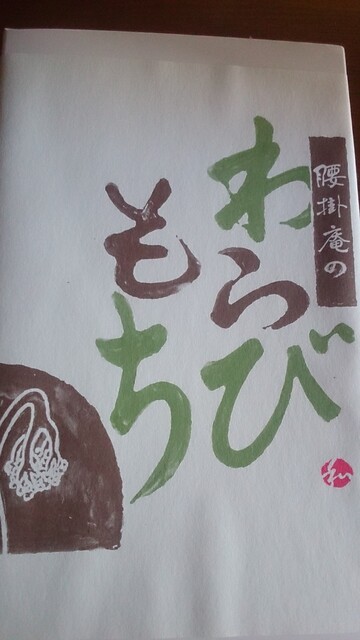 腰掛庵の
わらび
もち
和